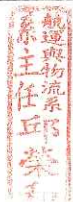 運與物流系
系主任丘榮